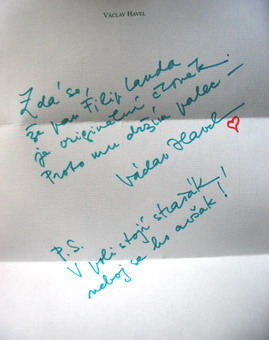 VÁCLAV HAVEL
Zdá se,
že pan Filip Landa
je originální člověk.
Proto mu držím palec –
Václav Havel
P.S.
V poli stojí strašák!
neboj se ho avšak!